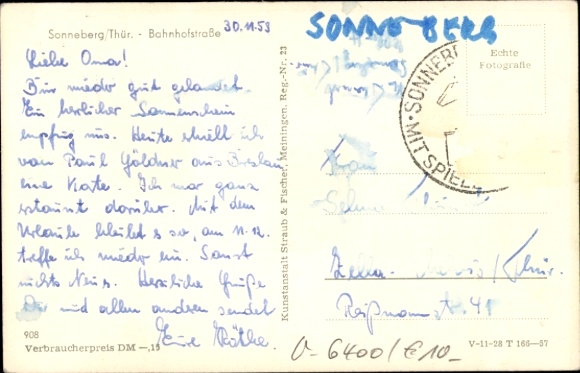 Sonneberg/Thür. - Bahnhofstraße
30.11.53
Liebe Oma!
Bin wieder gut gelandet.
Ein herlicher Sonnenschein
empfing uns. Heute erhielt ich
von Paul Göldner aus Breslau
eine Karte. Ich war ganz
erstaunt darüber. Mit dem
Urlaub bleibt es so, am 11.12.
treffe ich wieder ein. Sonst
nichts Neues. Herzliche Grüße
Dir und allen anderen sendet
Eure Käthe.
908
Verbraucherpreis DM —,15
Kunstanstalt Straub & Fischer, Meiningen, Reg.-Nr. 23
SONNEBERG
Echte
Fotografie
SONNEBE
MIT SPIEL
Frau
Zella-Mehlis/Thür.
Reißmannstr. 41
V-11-28 T 165—57
V-6400/€10-